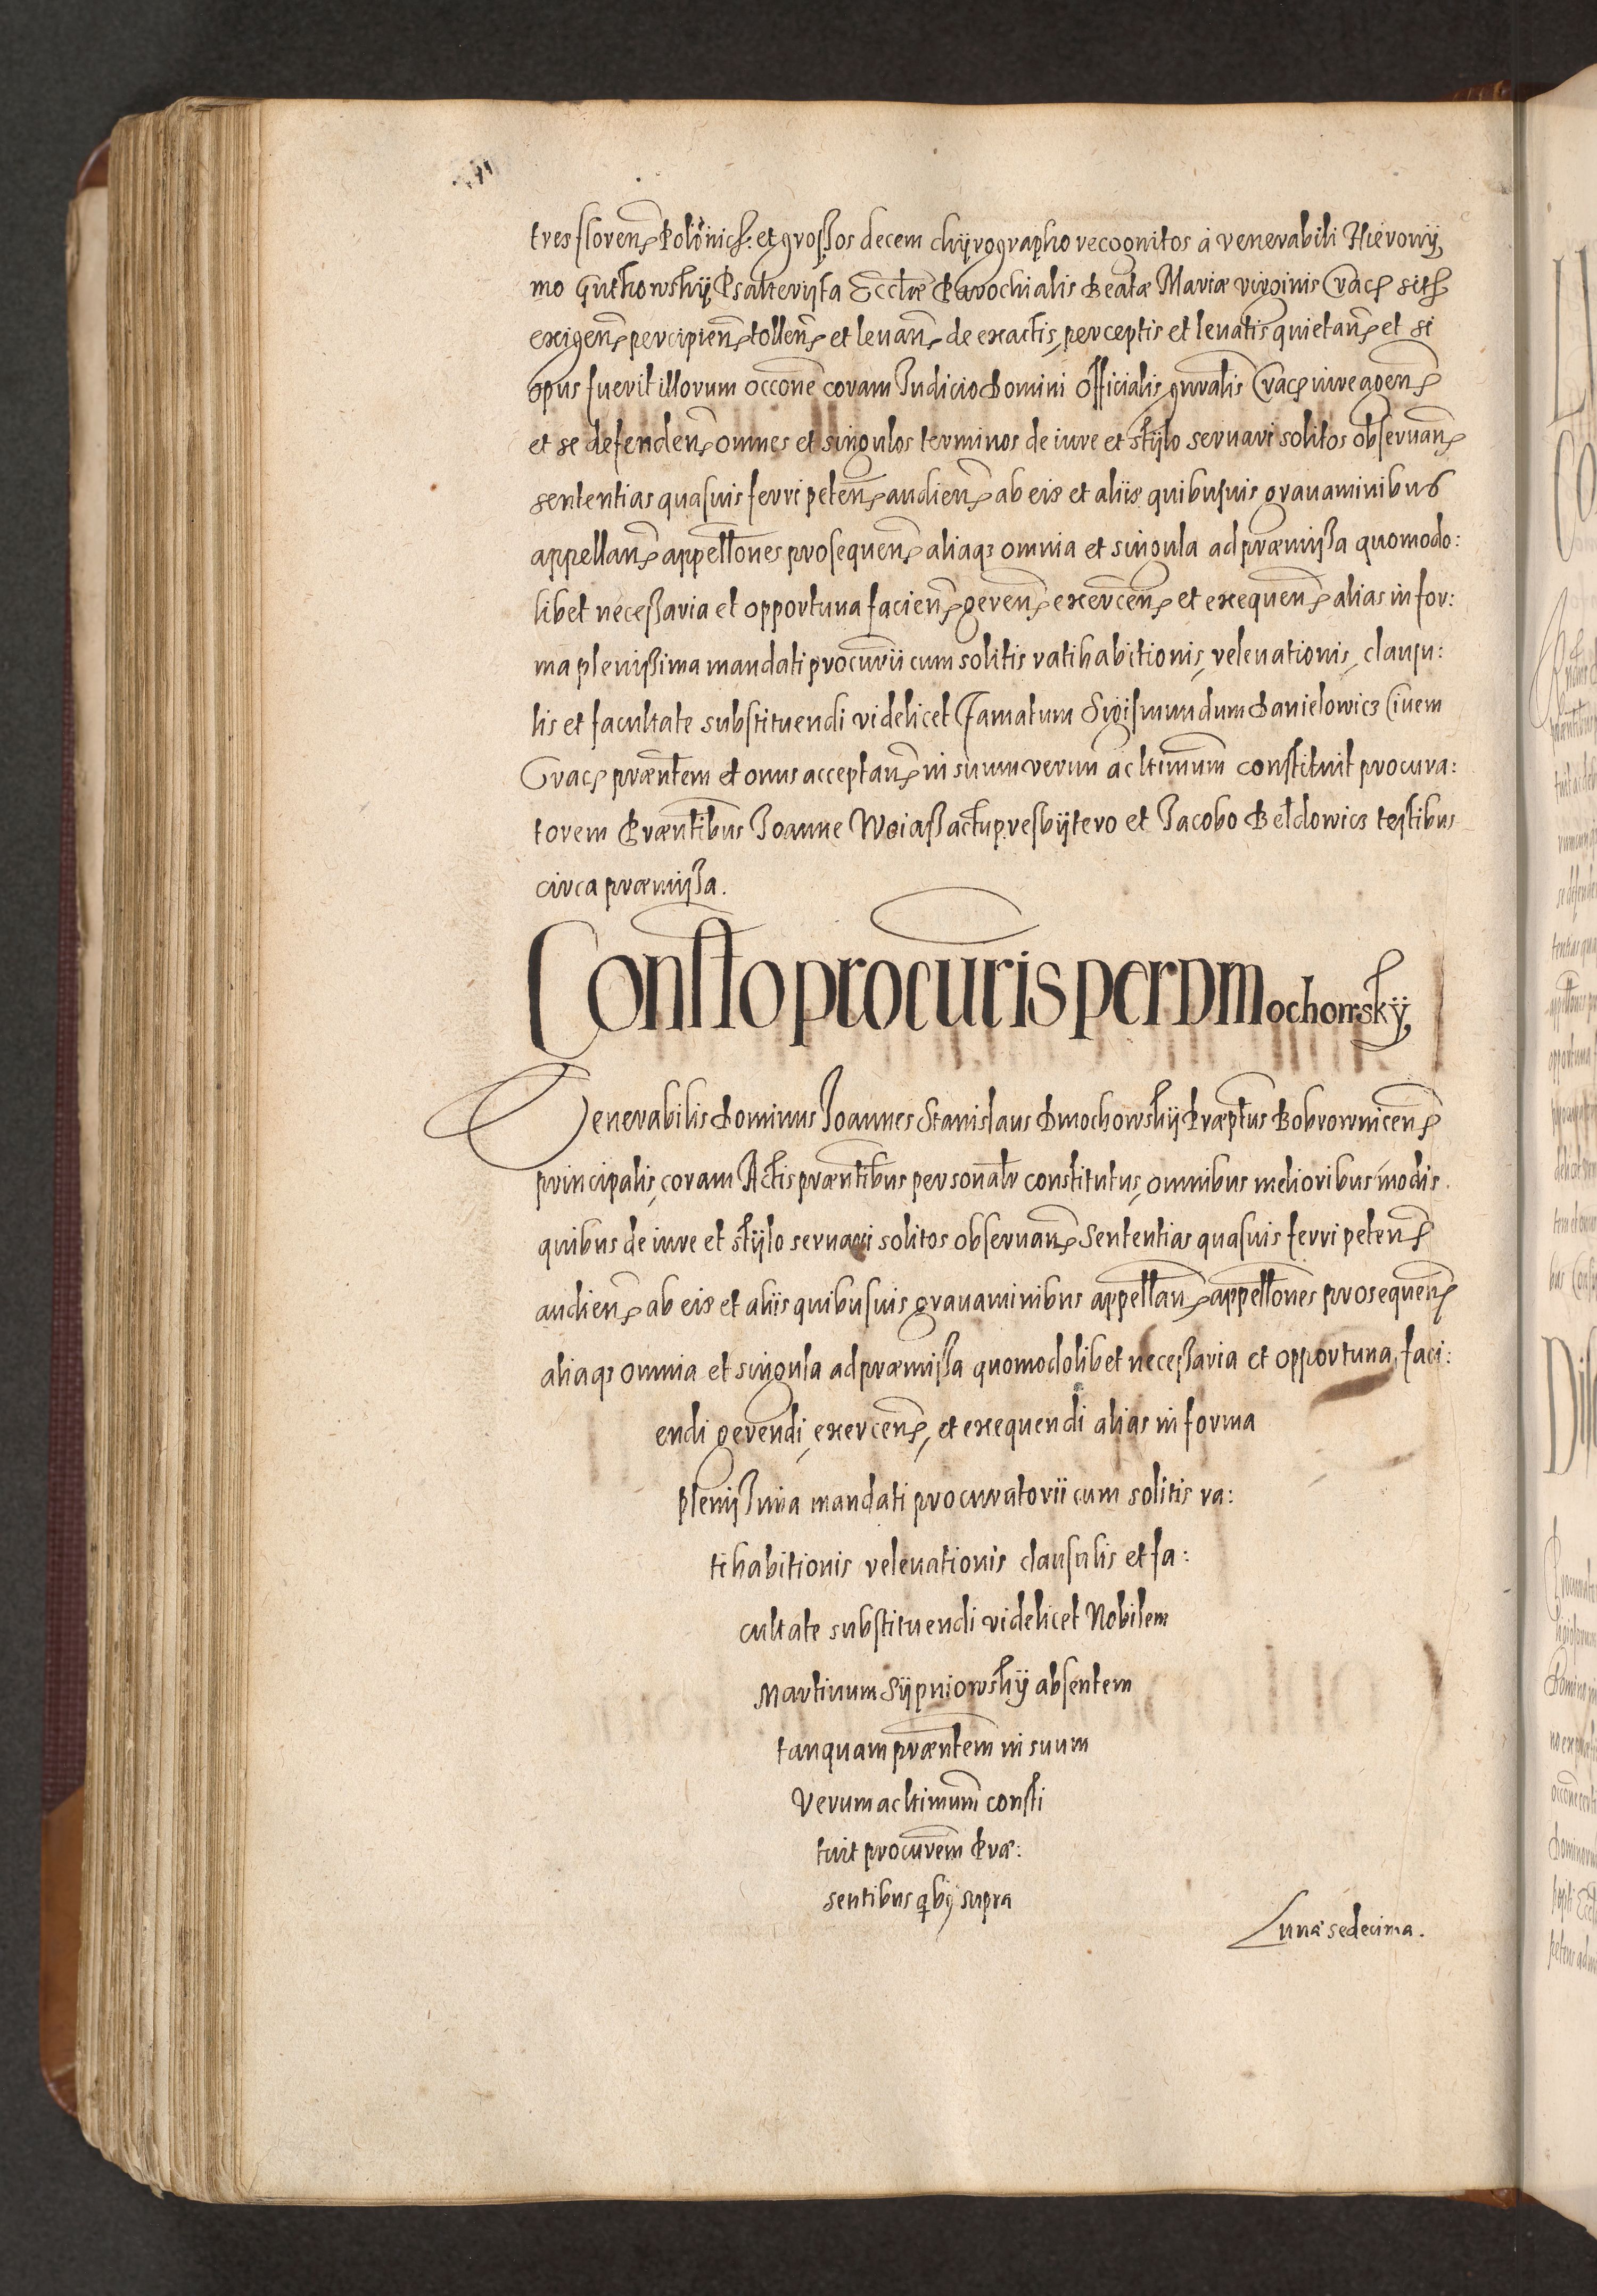 tres floren̄ Polonich: et grossos decem chÿrographo recognitos à venerabili Hieronÿ
mo Guthowskÿ Psalterysta Eccl̄æ Parochialis Beatæ Mariæ virginis Crac̨ sitæ
exigen̄ percipien̄ tollen̄ et levan̄ de exactis, perceptis et levatis quietan̄ et si
opus fuerit illorum occōne coram Iudicio Domini Officialis gn̄ralis Crac̨ iure agen̄
et se defenden̄ omnes et singulos terminos de iure et stÿlo servari solitos observan̄
sententias quasuis ferri peten̄ audien̄ ab eis et aliis quibusuis gravaminibus
appellan̄ appell̄ones prosequen̄ aliaqz omnia et singula ad præmissa quomodo:
libet necessaria et opportuna facien̄ geren̄ exercen̄ et exequen̄ alias in for:
ma plenissima mandati procur̄ii cum solitis ratihabitionis, relevationis, clausu:
lis et facultate substituendi videlicet Famatum Sigismundum Danielowicz Civem
Crac̨ præn̄tem et onus acceptan̄ in suum verum ac ltimum̄ constituit procura:
torem Præn̄tibus Joanne Woiass actup. resbÿtero et Jacobo Beldowicz testibus
circa præmissa.
Constō procuris per D Mochowskÿ
Venerabilis Dominus Joannes Stanislaus Dmochowskÿ Præpt̄us Bobrownicen̄
principalis, coram Actis præn̄tibus personal̄r constitutus, omnibus melioribus modis
quibus de iure et stÿlo servari solitos observan̄ Sententias quasuis ferri peten̄
audien̄ ab eis et aliis quibusuis gravaminibus appellan̄ appell̄ones prosequen̄
aliaqz omnia et singula ad præmissa quomodolibet necessaria et opportuna, faci:
endi gerendi, exercen̄, et exequendi alias in forma
plenissima mandati procuratorii cum solitis ra:
tihabitionis relevationis clausulis et fa:
cultate substituendi videlicet Nobilem
Martinum Sÿpniowskÿ absentem
tanquam præn̄tem in suum
Verum ac ltimum̄ consti
tuit procurem̄ Præ:
sentibus qbg supra
Lunæ sedecima.